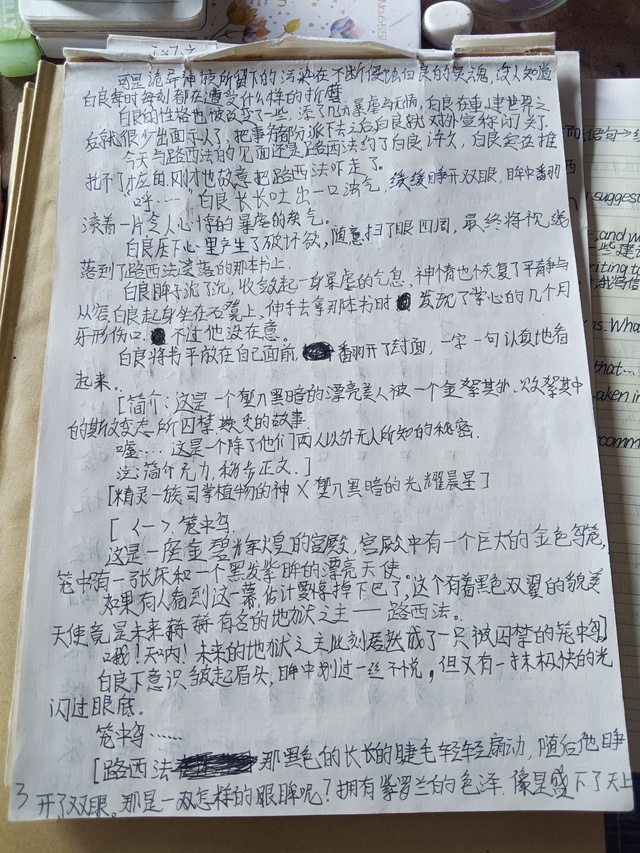 可是诡异神族所留下的污染在不断侵蚀白良的灵魂，没人知道
白良每时每刻都在遭受什么样的折磨
白良的性格也被改变了一些，添了几分暴虐与无情，白良在重建世界之
后就很少出面示人了，把事务都分派下去之后白良就对外宣称闭关了.
今天与路西法的见面还是路西法约了白良许久，白良实在推
托不了才应的.刚才也故意把路西法吓走了。
"呼……"白良长长吐出一口浊气，缓缓睁开双眼，眸中翻
滚着一片令人心悸的暴虐的戾气。
白良底下心里产生了破坏欲，随意扫了眼四周，最终将视线
落到了路西法遗落的那本书上.
白良眸子沉了沉，收敛起一身暴虐的气息，神情也恢复了平静与
从容白良起身坐在石凳上，伸手去拿那本书时发现了掌心的几个月
牙形伤口，不过他没在意。
白良将书平放在自己面前，翻开了封面，一字一句认真地看
起来。
[简介：这是一个堕入黑暗的漂亮美人被一个金絮其外、败絮其中
的斯文变态所囚禁的故事.
嘘……这是一个除了他们两人以外无人所知的秘密.
注：简介无力，稍步正文.]
[精灵一族司掌植物的神×堕入黑暗的光耀晨星]
[<一>笼中鸟.
这是一座金碧辉煌的宫殿，宫殿中有一个巨大的金色鸟笼，
笼中有一张床和一个黑发紫眸的漂亮天使。
如果有人看到这一幕估计要惊掉下巴了，这个有着黑色双翼的貌美
天使竟是未来赫赫有名的地狱之主——路西法。
哦！天呐！未来的地狱之主此刻居然成了一只被囚禁的笼中鸟]
白良下意识皱起眉头，眸中划过一丝不悦，但又有一抹极快的光
闪过眼底。
笼中鸟……
[路西法那黑色的长长的睫毛轻轻扇动，随后他睁
3 开了双眼。那是一双怎样的眼眸呢？拥有紫罗兰的色泽.像是盛下了天上
suggest
and w
iting t
s. Wha
that...
aken in
comm